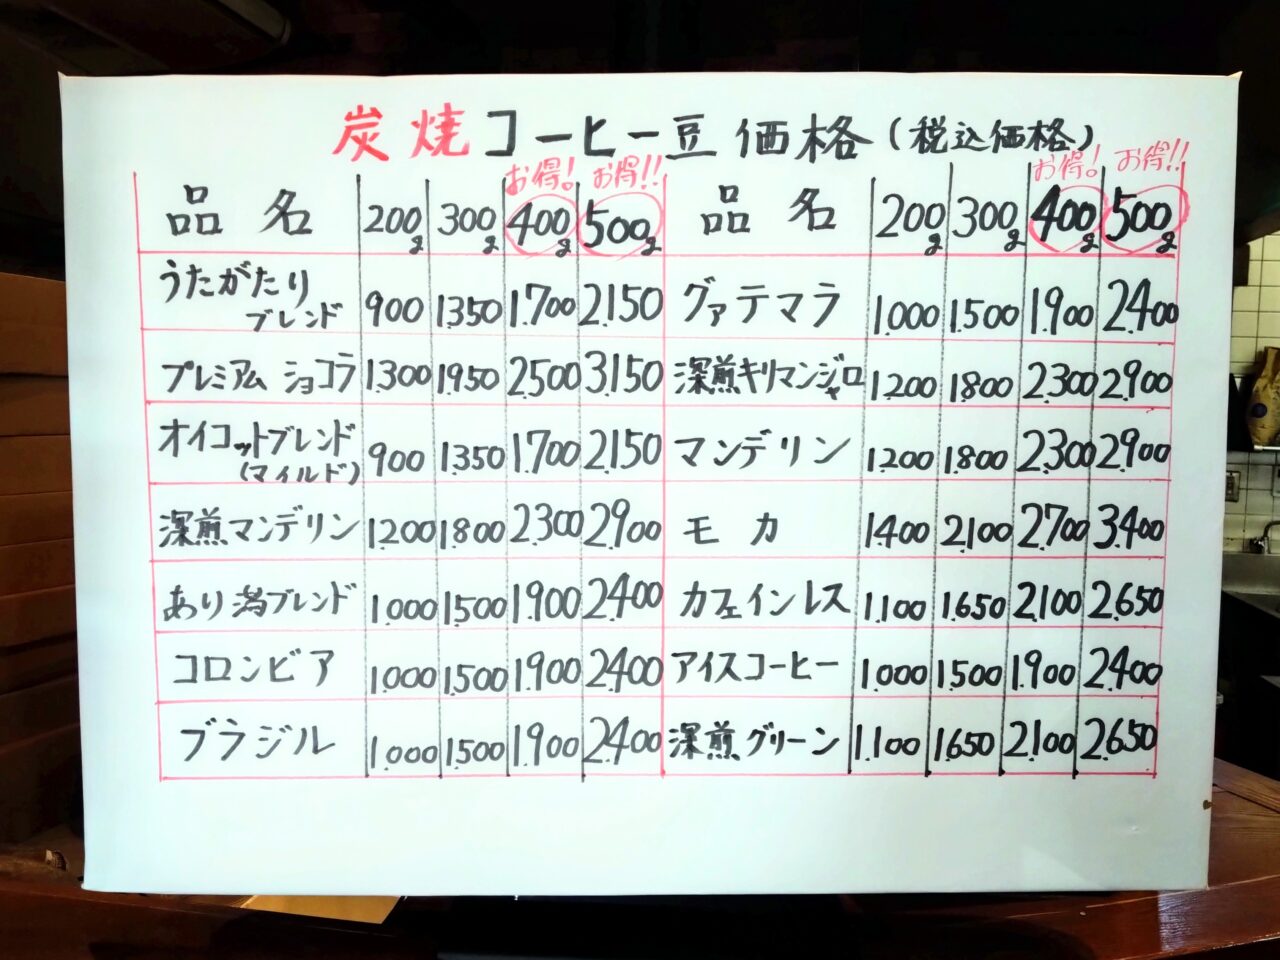 炭焼コーヒー豆 価格(税込価格)
お得! お得!! お得! お得!!
品名 200g 300g 400g 500g 品名 200g 300g 400g 500g
うたがたり
ブレンド 900 1350 1.700 2.150 グァテマラ 1.000 1.500 1.900 2.400
プレミアム ショコラ 1.300 1950 2500 3.150 深煎キリマンジャロ 1.200 1.800 2.300 2.900
オイコットブレンド
(マイルド) 900 1.350 1.700 2.150 マンデリン 1.200 1.800 2.300 2.900
深煎マンデリン 1.200 1.800 2.300 2.900 モカ 1.400 2.100 2.700 3.400
あり ブレンド 1.000 1.500 1.900 2.400 カフェインレス 1.100 1.650 2.100 2.650
コロンビア 1.000 1.500 1.900 2.400 アイスコーヒー 1.000 1.500 1.900 2.400
ブラジル 1.000 1.500 1.900 2.400 深煎グリーン 1.100 1.650 2.100 2.650